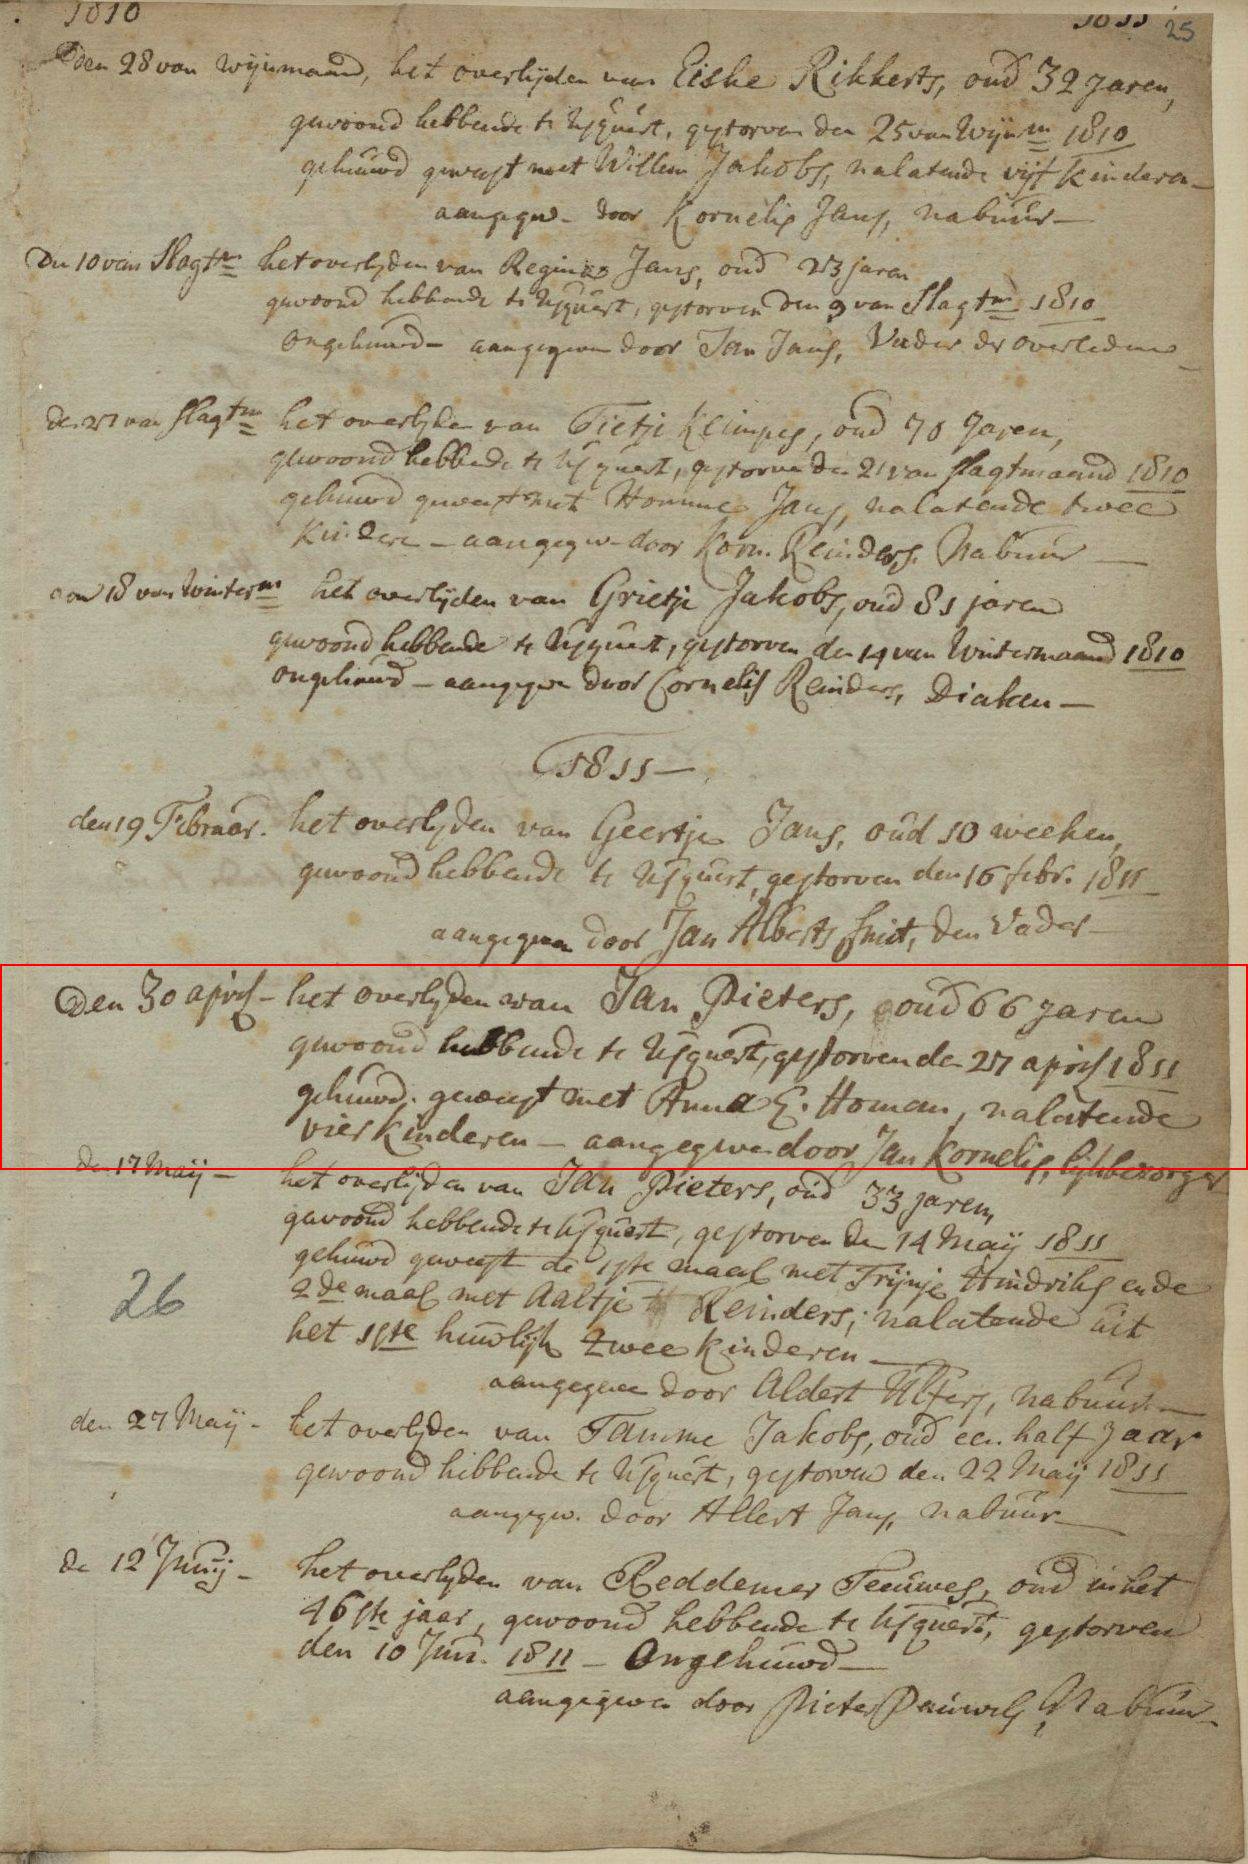 1810 1811 25
Den 28 van Wijnmaand, het overlijden van Eiske Rikkerts, oud 32 Jaren,
gewoond hebbende te Usquert, gestorven den 25 van Wijnm 1810
gehuwd geweest met Willem Jakobs, nalatende vijf kinderen
aangegev- door Kornelis Jans, nabuur
Den 10 van Slagtm het overlijden van Regina Jans, oud 23 jaren
gewoond hebbende te Usquert, gestorven den 9 van Slagtm 1810
Ongehuwd - aangegeven door Jan Jans, Vader der overledene
den 27 van Slagtm het overlyden van Tietje Klimpes, oud 70 Jaren,
gewoond hebbende te Usquert, gestorven den 21 van Slagtmaand 1810
gehuwd geweest met Homme Jans, nalatende twee
kinderen - aangegeven door Korn. Reinders. Nabuur
den 18 van Winterm het overlijden van Grietje Jakobs, oud 81 jaren
gewoond hebbende te Usquert, gestorven den 14 van Wintermaand 1810
ongehuwd - aangegeven door Cornelis Reinders, Diaken
1811
den 19 Februar. het overlyden van Geertje Jans, oud 10 weeken,
gewoond hebbende te Usquert, gestorven den 16 febr. 1811
aangegeven door Jan Alberts Smit, den Vader
Den 30 april - het overlyden van Jan Pieters, oud 66 jaren
gewoond hebbende te Usquert, gestorven den 27 april 1811
gehuwd geweest met Anna E. Homan, nalatende
vier kinderen - aangegeven door Jan Kornelis, lijkbezorger
den 17 Maij - het overlijden van Jan Pieters, oud 33 jaren,
gewoond hebbende te Usquert, gestorven den 14 Maij 1811
gehuwd geweest de 1ste maal met Trijnje Hindriks en de
26 2de maal met Aaltje Reinders, nalatende uit
het 1ste huwlijk twee kinderen
aangegeven door Aldert Ulfers, nabuur
den 27 Maij - het overlyden van Tamme Jakobs, oud een half Jaar
gewoond hebbende te Usquert, gestorven den 22 Maij 1811
aangegev. door Allert Jans, nabuur
den 12 Junij - het overlyden van Reddemer Teeuwes, oud in het
46ste jaar, gewoond hebbende te Usquert, gestorven
den 10 Juni. 1811 - Ongehuwd
aangegeven door Pieter Pauwels, Nabuur